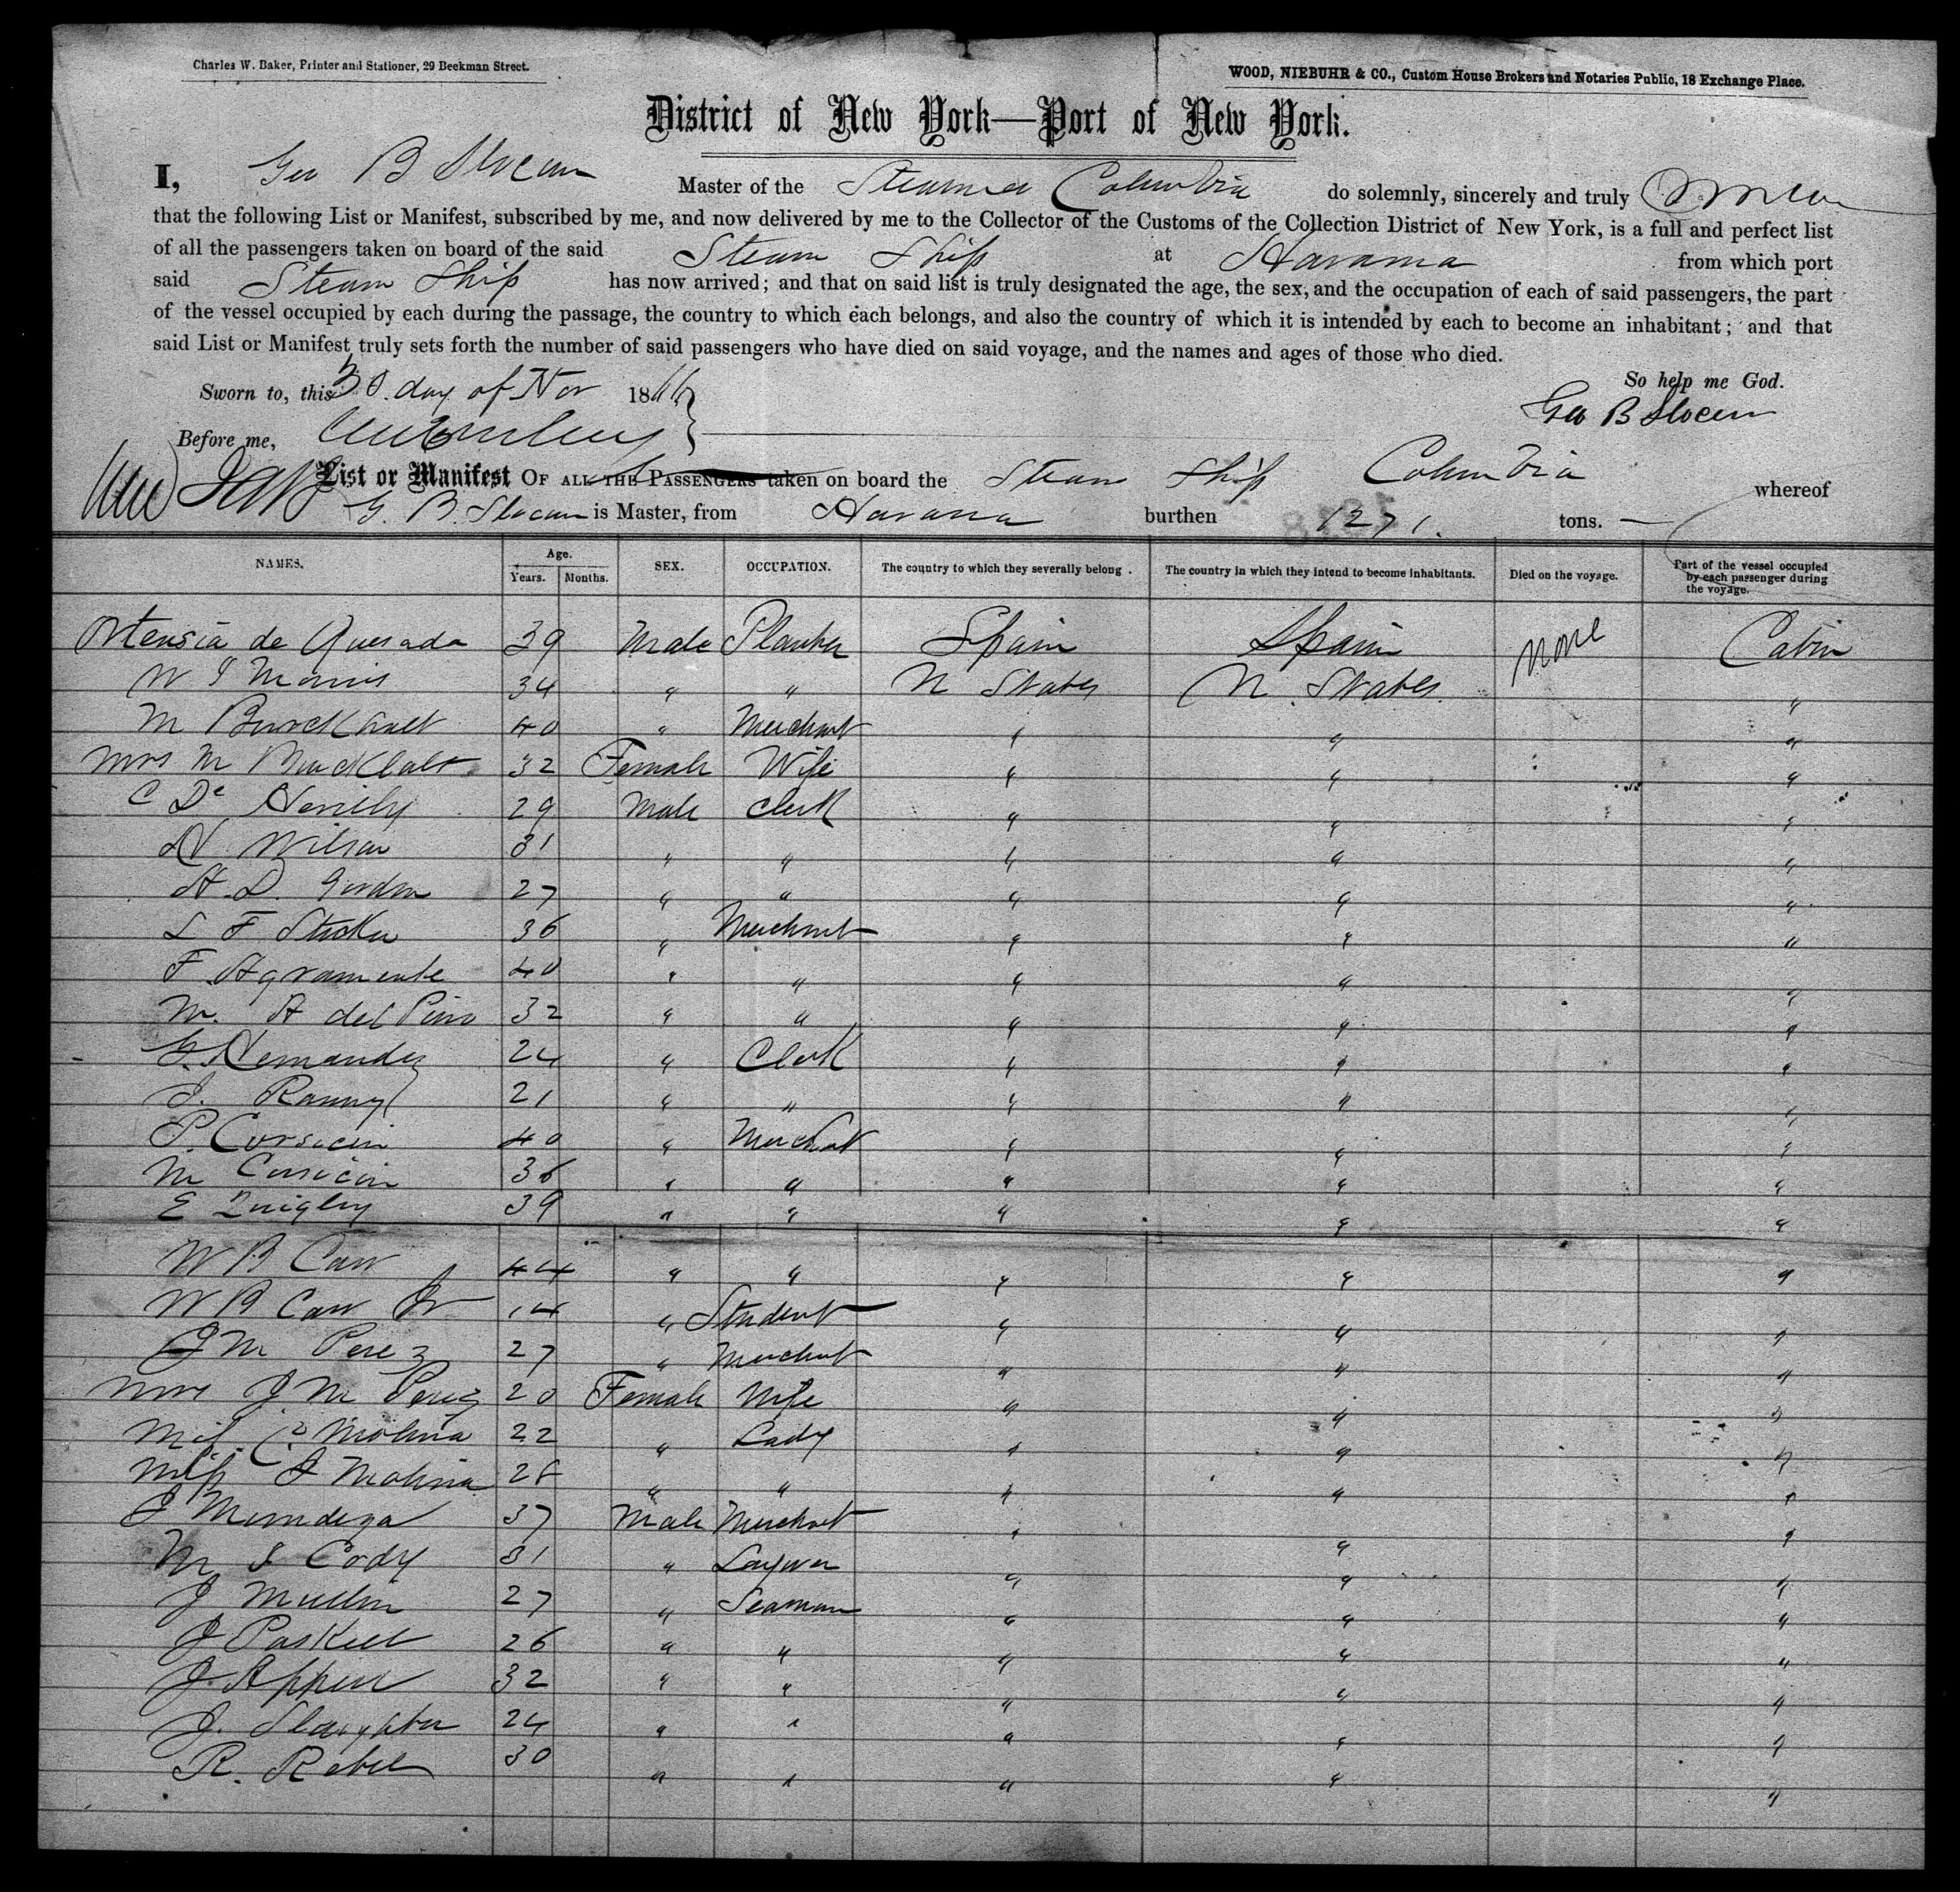 Charles W. Baker, Printer and Stationer, 29 Beekman Street.
WOOD, NIEBUHR & CO., Custom House Brokers and Notaries Public, 18 Exchange Place.
District of New York—Port of New York.
I, Geo B Slocum Master of the Steamer Columbia do solemnly, sincerely and truly
that the following List or Manifest, subscribed by me, and now delivered by me to the Collector of the Customs of the Collection District of New York, is a full and perfect list
of all the passengers taken on board of the said Steam Ship at Havana from which port
said Steam Ship has now arrived; and that on said list is truly designated the age, the sex, and the occupation of each of said passengers, the part
of the vessel occupied by each during the passage, the country to which each belongs, and also the country of which it is intended by each to become an inhabitant; and that
said List or Manifest truly sets forth the number of said passengers who have died on said voyage, and the names and ages of those who died.
So help me God.
Sworn to, this 30. day of Nov 1866
Geo B Slocum
Before me,
List or Manifest OF ALL THE PASSENGERS taken on board the Steam Ship Columbia whereof
G. B. Slocum is Master, from Havana burthen 1271. tons.
NAMES. Age. Years. Months. SEX. OCCUPATION. The country to which they severally belong. The country in which they intend to become inhabitants. Died on the voyage. Part of the vessel occupied by each passenger during the voyage.
Ortensia de Quesada 39 Male Planter Spain Spain None Cabin
W 34 " " U States U. States "
M Burckhalt 40 " Merchant " " "
Mrs M Burckhalt 32 Female Wife " " "
C De 29 Male Clerk " " "
N Wilson 31 " " " " "
H. D. Gordon 27 " " " " "
L F 36 " Merchant " " "
F Agramonte 40 " " " " "
M. A del Pino 32 " " " " "
G. Hernandez 24 " Clerk " " "
J. 21 " " " " "
P. 40 " Merchant " " "
M 36 " " " " "
E Quigley 39 " " " " "
W B Carr 44 " " " " "
W B Carr Jr 14 " Student " " "
J M Perez 27 " Merchant " " "
Mrs J M Perez 20 Female Wife " " "
Miss C. Molina 22 " Lady " " "
Miss J Molina 28 " " " " "
J 37 Male Merchant " " "
M J Cody 31 " Lawyer " " "
J Mullin 27 " Seaman " " "
J 26 " " " " "
J. 32 " " " " "
J. Slaughter 24 " " " " "
R. Rebel 30 " " " " "